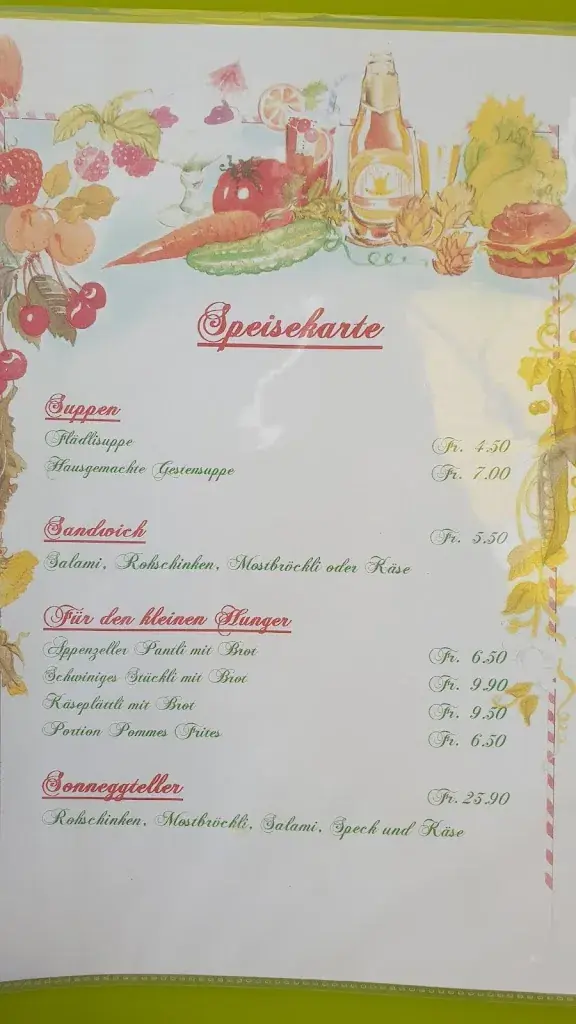 Speisekarte
Suppen
Flädlisuppe Fr. 4.50
Hausgemachte Gestensuppe Fr. 7.00
Sandwich Fr. 5.50
Salami, Rohschinken, Mostbröckli oder Käse
Für den kleinen Hunger
Appenzeller Pantli mit Brot Fr. 6.50
Schwiniges Stückli mit Brot Fr. 9.90
Käseplättli mit Brot Fr. 9.50
Portion Pommes Frites Fr. 6.50
Sonneggteller Fr. 25.90
Rohschinken, Mostbröckli, Salami, Speck und Käse